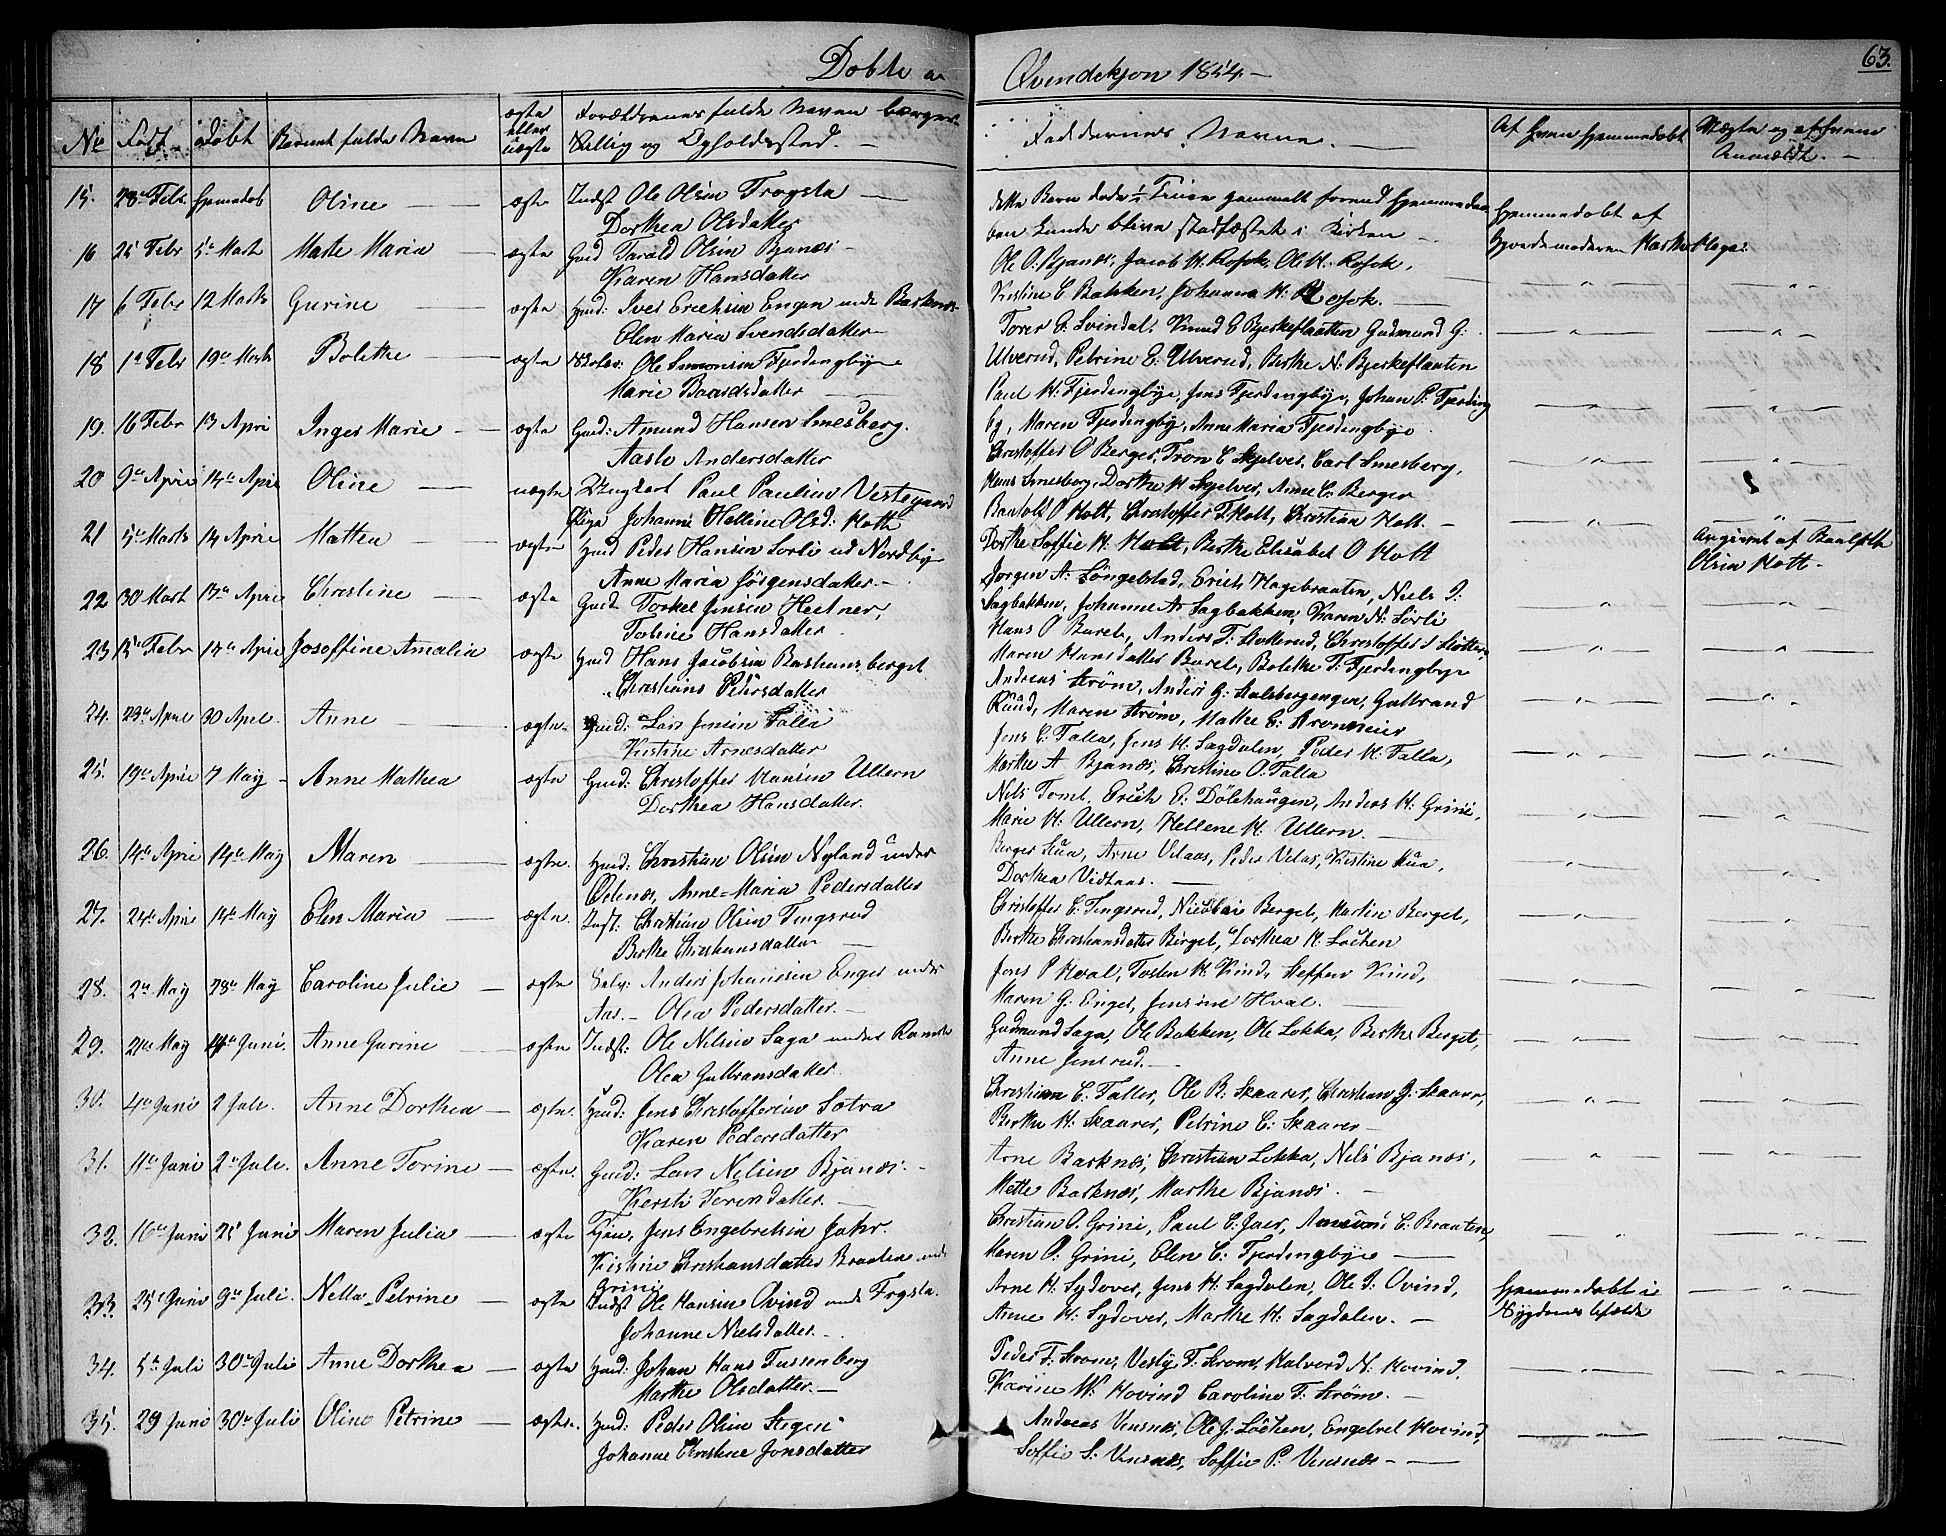 63.
Døbte a Qvindekjøn 1854.
No Født døbt Barnets fulde Navn ægte eller uægte Forældrenes fulde Navne borger Stillig og Opholdssted. Faddernes Navne. Af Hvem hjemmedøbt Uægte og af hvem Anmeldt.
15. 28de Febr. hjemmedøb Oline ægte Indst Ole Olsen Trogsta
Dorthea Olsdatter
dette Barn døde gammelt forend hjemmedaa
ben kunde blive stadfæstet i Kirken
hjemmedøbt af
Gjordemoderen Marthe Haga:
16 25 Febr 5te Marts Marte Maria ægte Gmd Tarald Olsen Bjanæs
Karen Hansdatter
Ole O. Bjanæs, Jacob H. Kopok, Ole H. Kopok,
Kirstine C Bakken, Johanna H.
17 6 Febr 12 Marts Gurine ægte Hmd: Iver Erichsen Engen unde Barknæs
Elen Maria Svendsdatter
Torer E. Svindal, Knud E Bjerkeflaatten Gudmund G:
Ulverud, Petrine E: Ulverud, Berthe N: Bjerkeflaaten
18 1te Febr 19de Marts Bolethe ægte Ole Simonsen Fjerdingbye
Marie Baardsdatter
Paul H. Fjerdingbye, Jens Fjerdingbye, Johan P. Fjerding
by, Maren Fjerdingby, Anne Maria Fjerdingbye
19. 16 Febr 13 Apri Inger Marie ægte Gmd: Amund Hansen Smesberg.
Aaste Andersdatter
Christoffer O Berger, Tron C Skjelver, Carl Smesberg,
Hans Smesberg, Dorthe H Skjelver, Anne C. Berger
20 9de Aprie 14de Apri Oline uægte Ungkarl Paul Paulsen Vestegaard
Pige Johanne Helline Olsd: Holt
O Holt, Christoffer T. Holt, Christian Holt.
Dorthe Soffie H. Holt, Berthe Elisabet O Holt
Angivet af
Olsen Holt
21 5te Marts 14 Aprie Mathea ægte Hmd Peder Hansen Sorli ud Nordby
Anne Maria Jörgensdatter
Jorgen A. Söngelstad, Erich Hagebraaten, Niels J:
Sagbakken, Johanne A. Sagbakken, Karen N. Sörli
22 30 Mart 17de Aprie Christine ægte Gmd Torkel Jensen Heitner,
Tobine Hansdatter
Hans O Burel, Anders T. Slotterud, Christoffer S Slotter
Maren Hansdatter Burel, Bolethe T. Fjerdingbye
23 15de Febr 17de Aprie Josoffine Amalia ægte Hmd Hans Jacobsen Bashusberget
Christians Pedersdatter
Andreas Strøm, Anders G: Aalsbergengen, Gulbrand
Ruud, Maren Strøm, Mathe E:
24. 23de April 30 Apri. Anne ægte Gmd: Lars Jensen Falla
Kirstine Arnesdatter
Jens C: Falla, Jens H. Sagdalen, Peder H. Falla,
Marthe A Bjanæs, Christine O. Falla
25. 19de Aprie 7 May Anne Mathea ægte Gmd: Christoffer Hansen Ullern
Dorthea Hansdatter.
Nils Tomt, Erich E: Dölehaugen, Anders H. Grini,
Marie H: Ullern, Hellene H. Ullern.
26. 14de Apri 14de May Maren ægte. Hmd: Christian Olsen Nyland under
Ødenæs, Anne-Maria Pedersdatter
Berger Hua, Arne Velaas, Peder Velas, Kirstine Hua,
Dorthea Vidtaas.
27. 24de Apri 14de May Elen Maria ægte. Indst: Christian Olsen Tingsrud
Berthe Christiansdatter
Christoffer C. Tingsrud, Nicolai Berget, Martin Berget,
Berthe Christiansdatter Berget, Dorthea H. Lochen
28. 2de May 28de May Caroline Julie ægte Selv: Anders Johansen Enger under
Aas. Olea Pedersdatter.
Jens P Hval, Torsten H. Kind, Steffen Kind,
Maren G. Enget, Jensine Hval.
29. 21de May 4de Juni. Anne Gurine ægte Indst: Ole Nilsen Saga under Ramst
Olea Gulbransdatter
Gudmund Saga, Ole Bakken, Ole Lokka, Berthe Berget,
Anne Jensrud.
30. 4de Juni 2 Juli. Anne Dorthea ægte. Hmd: Jens Christoffersen Sotra
Karen Pedersdatter
Christian C. Faller, Ole B. Skaarer, Christian G. Skaarer,
Berthe H. Skaarer, Petrine C: Skaarer
31. 11te Juni 2de Juli. Anne Torine ægte. Gmd: Lars Nilsen Bjanæs.
Kersti Torersdatter.
Arne Barknæs, Christian Lokka, Nils Bjanæs,
Mette Barknæs, Marthe Bjanæs.
32. 16de Juni 25 Juni Maren Julia ægte Tjen, Jens Engebretsen Jahr.
Kirstine Christiansdatter Braaten unde
Grini
Christian O. Grini, Paul C. Jaer, C: Braaten,
Maren O: Grini, Elen C: Fjerdingbye
33. 25de Juni 9de Juli. Netta-Petrine ægte Indst Ole Hansen Ovind unde Frogsta.
Johanne Nielsdatter.
Arne H. Sydover, Jens H. Sagdalen, Ole J. Ovind,
Anne H. Sydover, Marthe H. Sagdalen.
hjemmedøbt i
Bygdens
34. 5te Juli 30te Juli Anne Dorthea ægte Hmd: Johan Hans Tussenberg
Marthe Olsdatter.
Peder T. Strøm, Vesly T. Strøm, Halvord N. Hovind,
Karine N. Hovind Caroline T. Strøm.
35. 29 Juni 30te Juli Oline Petrine ægte. Hmd: Peder Olsen Stegen
Johanne Christine Jonsdatter
Andreas Vensnæs, Ole J. Löchen, Engebret Hovind,
Soffie S: Vensnæs, Soffie P. Vensnæs